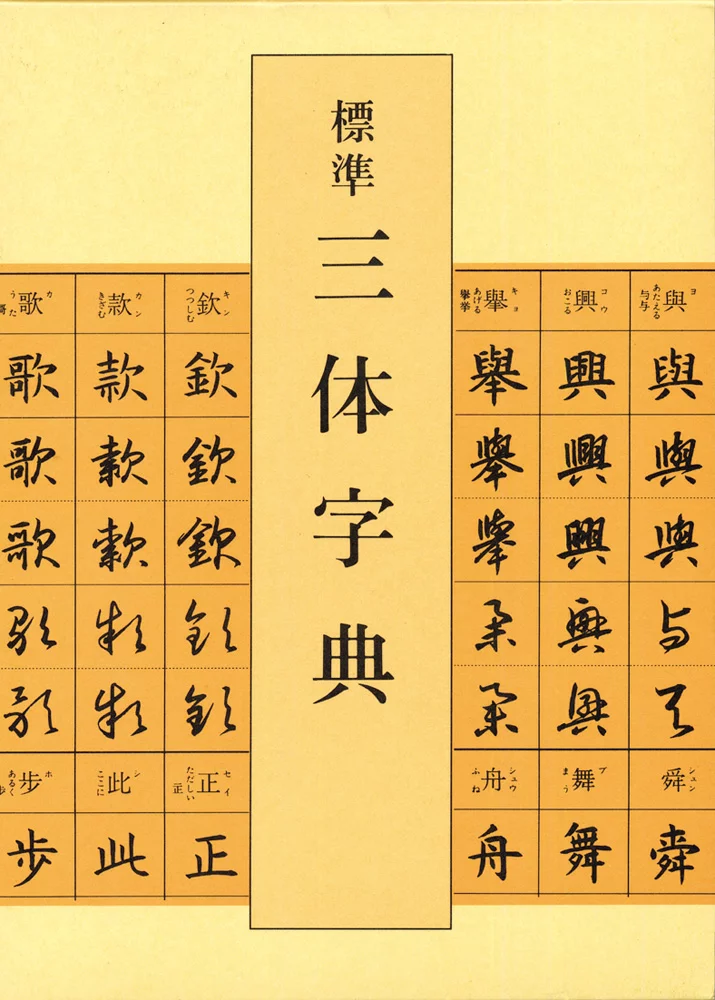 標準 三体字典
與 ヨ あたえる 与与
與
與
與
与
与
舜 シュン
舜
興 コウ おこる
興
興
興
興
興
舞 ブ まう
舞
舉 キョ あげる 擧挙
舉
舉
舉
舉
舉
舟 シュウ ふね
舟
欽 キン つつしむ
欽
欽
欽
欽
欽
正 セイ ただしい 正
正
款 カン きざむ
款
款
款
款
款
此 シ ここに
此
歌 カ うた
歌
歌
歌
歌
歌
步 ホ あるく
步